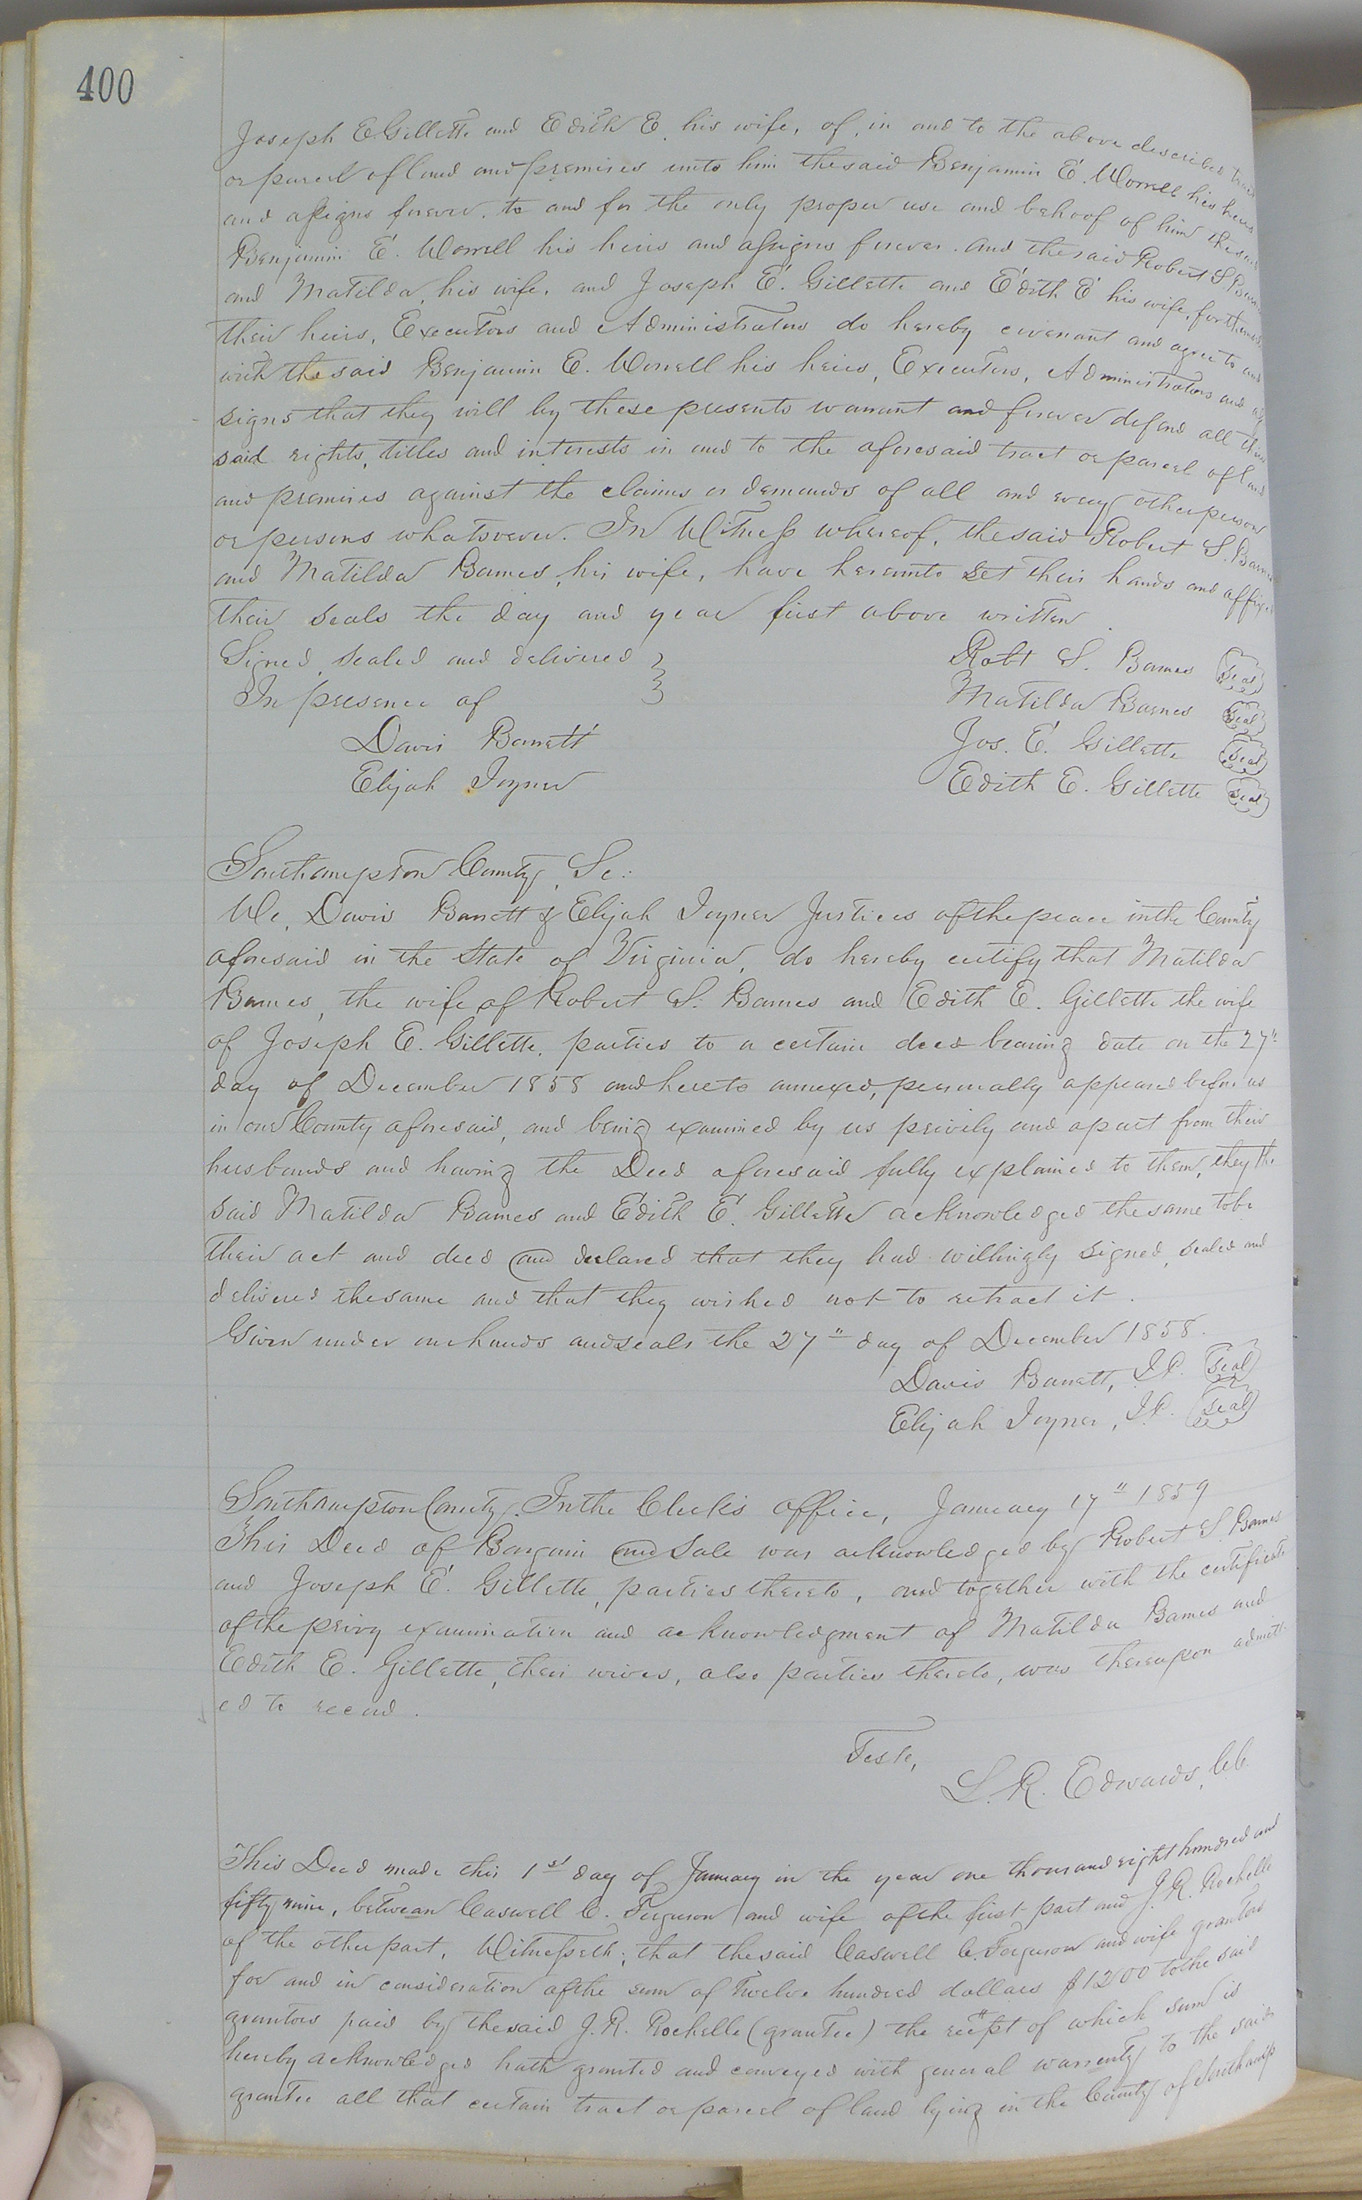 400
Joseph E Gillette and Edith E. his wife, of, in and to the above described tract
or parcel of land and premises unto him the said Benjamin E. Worrell his heirs
and assigns forever, to and for the only proper use and behoof of him the said
Benjamin E. Worrell his heirs and assigns forever. And the said Robert S. Barnes
and Matilda, his wife, and Joseph E. Gillette and Edith E his wife, for themselves
their heirs, Executors and Administrators do hereby covenant and agree to and
with the said Benjamin E. Worrell his heirs, Executors, Administrators and as
signs that they will by these presents warrant and forever defend all their
said rights, titles and interests in and to the aforesaid tract or parcel of land
and premises against the claims or demands of all and every other person
or persons whatsoever. In Witness whereof, the said Robert S. Barnes
and Matilda Barnes, his wife, have hereunto set their hands and affixed
their seals the day and year first above written.
Signed, sealed and delivered } Robt S. Barnes (seal)
In presence of } Matilda Barnes (seal)
Davis Barrett Jos. E. Gillette (seal)
Elijah Joyner Edith E. Gillette (seal)
Southampton County, Sc:
We, Davis Barrett & Elijah Joyner Justices of the peace in the County
aforesaid in the State of Virginia, do hereby certify that Matilda
Barnes, the wife of Robert S. Barnes and Edith E. Gillette the wife
of Joseph E. Gillette, parties to a certain deed bearing date on the 27"
day of December 1858 and hereto annexed, personally appeared before us
in our County aforesaid, and being examined by us privily and apart from their
husbands and having the Deed aforesaid fully explained to them, they the
said Matilda Barnes and Edith E. Gillette acknowledged the same to be
their act and deed and declared that they had willingly signed, sealed and
delivered the same and that they wished not to retract it.
Given under our hands and seals the 27" day of December 1858.
Davis Barrett, J.P. (seal)
Elijah Joyner, J.P. (seal)
Southampton County. In the Clerk's office, January 17" 1859
This Deed of Bargain and Sale was acknowledged by Robert S. Barnes
and Joseph E. Gillette, parties thereto, and together with the certificate
of the privy examination and acknowledgment of Matilda Barnes and
Edith E. Gillette, their wives, also parties thereto, was thereupon admitt
ed to record.
Teste,
L. R. Edwards, C.C.
This Deed made this 1st day of January in the year one thousand eight hundred and
fifty nine, between Caswell C. Ferguson and wife of the first part and J. R. Rochelle
of the other part, Witnesseth; that the said Caswell C. Ferguson and wife grantors
for and in consideration of the sum of Twelve hundred dollars $1200 to the said
grantors paid by the said J. R. Rochelle (grantee) the receipt of which sum is
hereby acknowledged hath granted and conveyed with general warrenty to the said
grantee all that certain tract or parcel of land lying in the County of Southamp